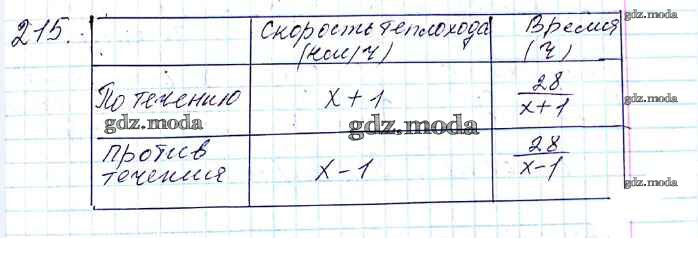 215.
Скорость теплохода (км/ч)
Время (ч)
По течению
x + 1
28/(x+1)
против течения
x - 1
28/(x-1)
gdz.moda
gdz.moda
gdz.moda
gdz.moda
gdz.moda